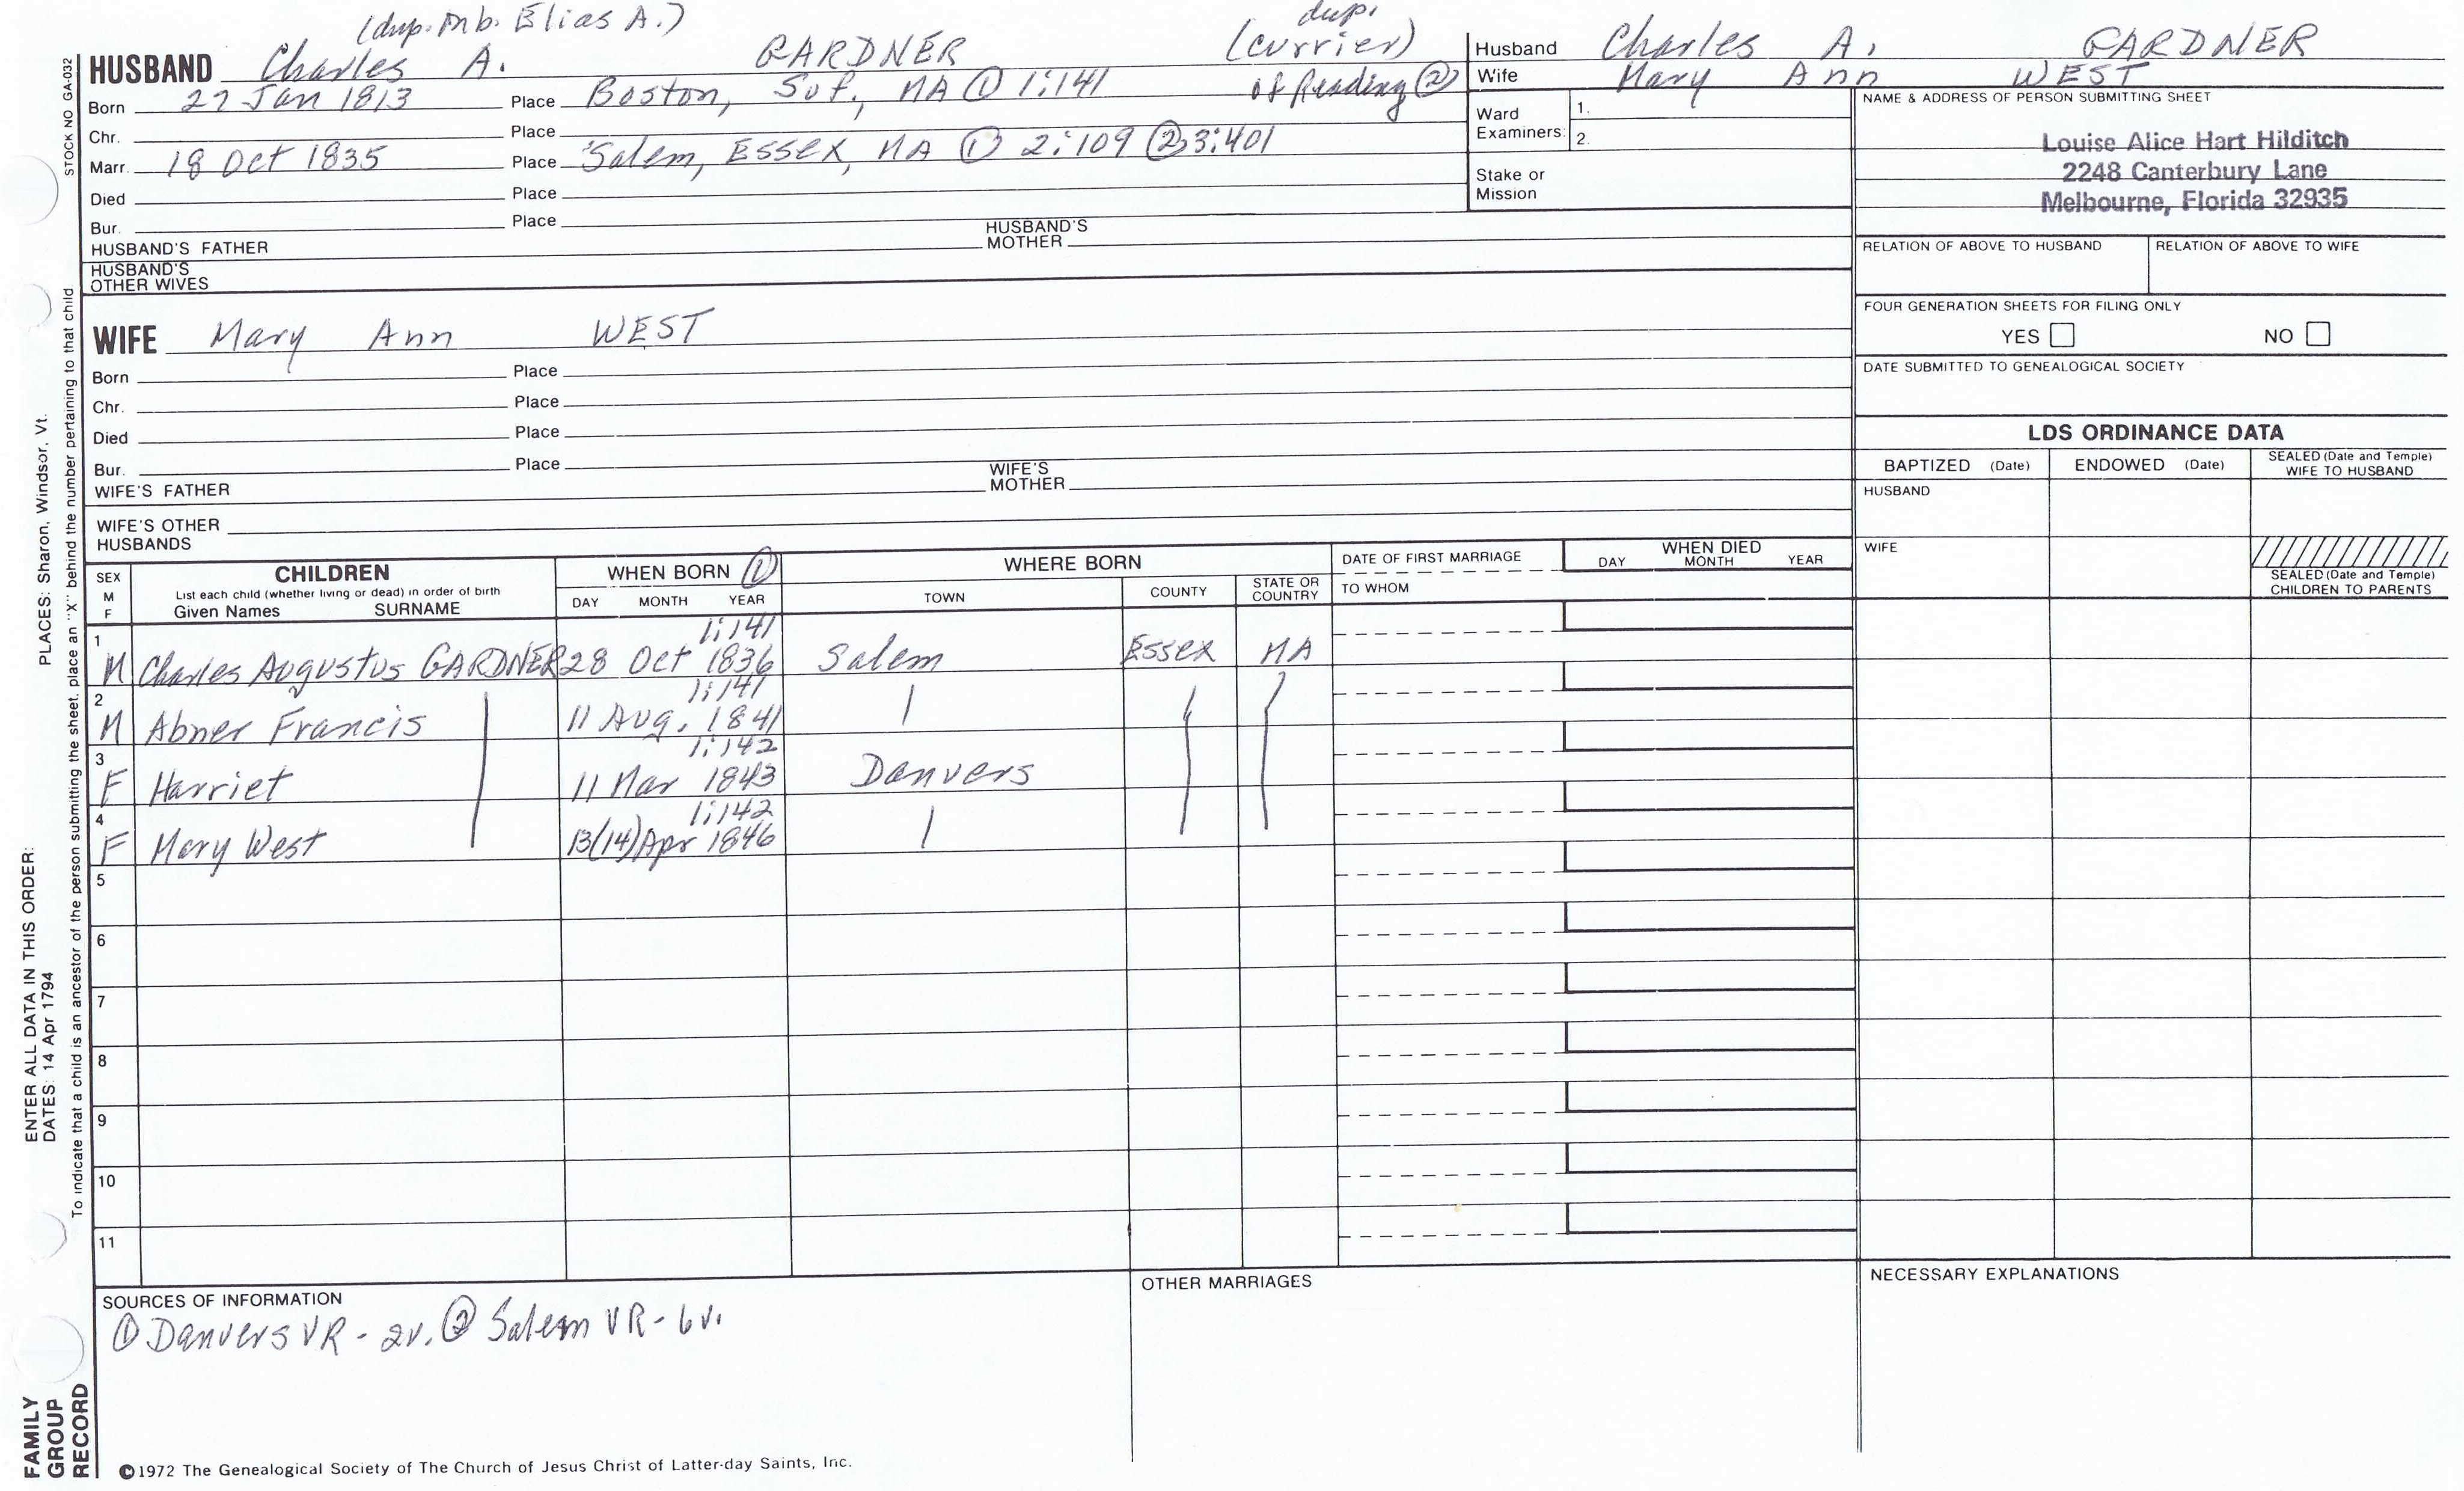 (dup. mb. Elias A.)
dup.
(currier)
HUSBAND Charles A. GARDNER
Born 27 Jan 1813 Place Boston, Suf., MA ① 1:141 of Reading ②
Chr. Place
Marr. 18 Oct 1835 Place Salem, Essex, MA ① 2:109 ② 3:401
Died Place
Bur. Place
HUSBAND'S FATHER HUSBAND'S MOTHER
HUSBAND'S
OTHER WIVES
Husband Charles A. GARDNER
Wife Mary Ann WEST
Ward
Examiners: 1.
2.
Stake or
Mission
NAME & ADDRESS OF PERSON SUBMITTING SHEET
Louise Alice Hart Hilditch
2248 Canterbury Lane
Melbourne, Florida 32935
RELATION OF ABOVE TO HUSBAND RELATION OF ABOVE TO WIFE
FOUR GENERATION SHEETS FOR FILING ONLY
YES NO
DATE SUBMITTED TO GENEALOGICAL SOCIETY
WIFE Mary Ann WEST
Born Place
Chr. Place
Died Place
Bur. Place
WIFE'S FATHER WIFE'S MOTHER
WIFE'S OTHER
HUSBANDS
LDS ORDINANCE DATA
BAPTIZED (Date) ENDOWED (Date) SEALED (Date and Temple) WIFE TO HUSBAND
HUSBAND
WIFE
SEALED (Date and Temple)
CHILDREN TO PARENTS
SEX
M
F
CHILDREN
List each child (whether living or dead) in order of birth
Given Names SURNAME
WHEN BORN ①
DAY MONTH YEAR
WHERE BORN
TOWN COUNTY STATE OR COUNTRY
DATE OF FIRST MARRIAGE
TO WHOM
WHEN DIED
DAY MONTH YEAR
1 1:141
M Charles Augustus GARDNER 28 Oct 1836 Salem Essex MA
2 1:141
M Abner Francis 11 Aug. 1841
3 1:142
F Harriet 11 Mar 1843 Danvers
4 1:142
F Mary West 13(14) Apr 1846
5
6
7
8
9
10
11
SOURCES OF INFORMATION
① Danvers VR - 2v. ② Salem VR - 6v.
OTHER MARRIAGES
NECESSARY EXPLANATIONS
©1972 The Genealogical Society of The Church of Jesus Christ of Latter-day Saints, Inc.
STOCK NO GA-032
To indicate that a child is an ancestor of the person submitting the sheet. place an "X" behind the number pertaining to that child
ENTER ALL DATA IN THIS ORDER:
DATES: 14 Apr 1794
PLACES: Sharon, Windsor, Vt.
FAMILY
GROUP
RECORD